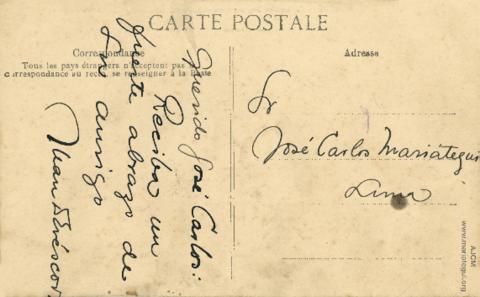 CARTE POSTALE
Correspondance
Tous les pays étrangers n'acceptent pas la
correspondance au recto, se renseigner à la Poste
Querido José Carlos:
Reciba un
fuerte abrazo de
su amigo
Juan
Adresse
Sr
José Carlos Mariátegui
Lima
AJCM
www.mariategui.org